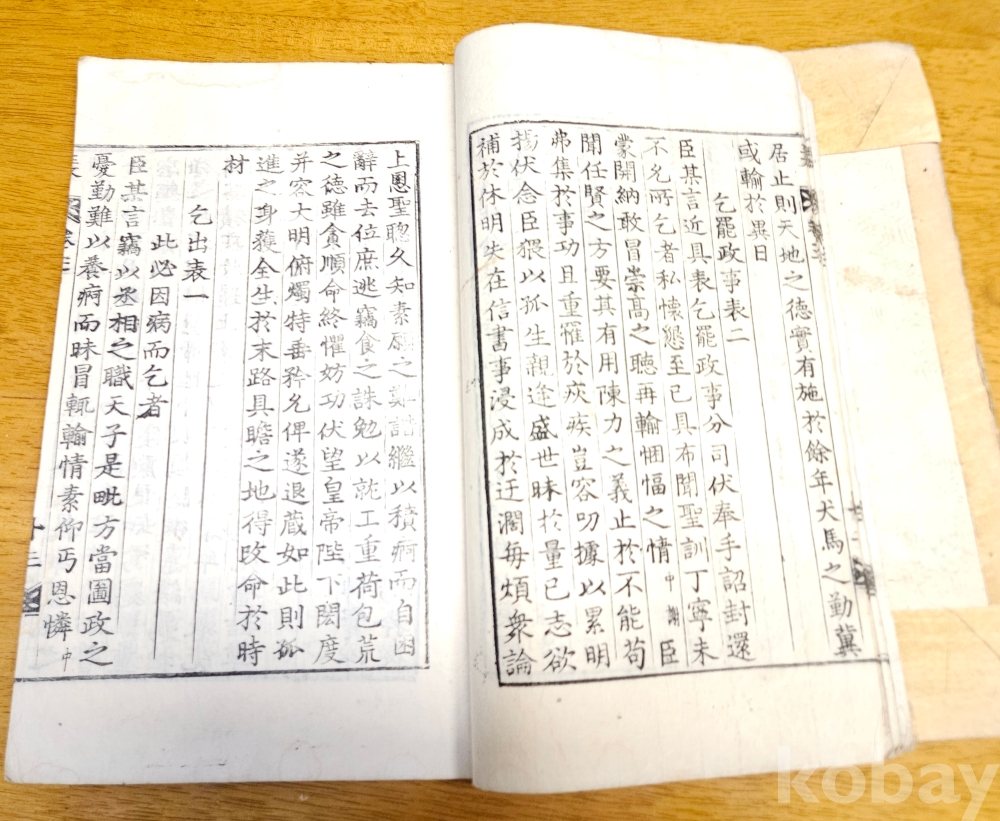 居止則天地之德實有施於餘年犬馬之勤冀
或輸於異日
乞罷政事表二
臣某言近具表乞罷政事分司伏奉手詔封還
不允所乞者私懷懇至已具布聞聖訓丁寧未
蒙開納敢冒崇髙之聽再輸悃愊之情中謝臣
聞任賢之方要其有用陳力之義止於不能苟
弗集於事功且重罹於疢疾豈容叨據以累明
揚伏念臣猥以孤生親逢盛世昧於量已志欲
補於休明失在信書事浸成於迂濶每煩衆論
上恩聖聦久知素願之難諧繼以積痾而自困
辭而去位庶逃竊食之誅勉以就工重荷包荒
之德雖貪順命終懼妨功伏望皇帝陛下閎度
并容大明俯燭特垂矜允俾遂退藏如此則孤
進之身獲全生於末路具瞻之地得改命於時
材
乞出表一
此必因病而乞者
臣某言竊以丞相之職天子是毗方當圖政之
憂勤難以養痾而昧冒輒翰情素仰丐恩憐中
十三
kobay